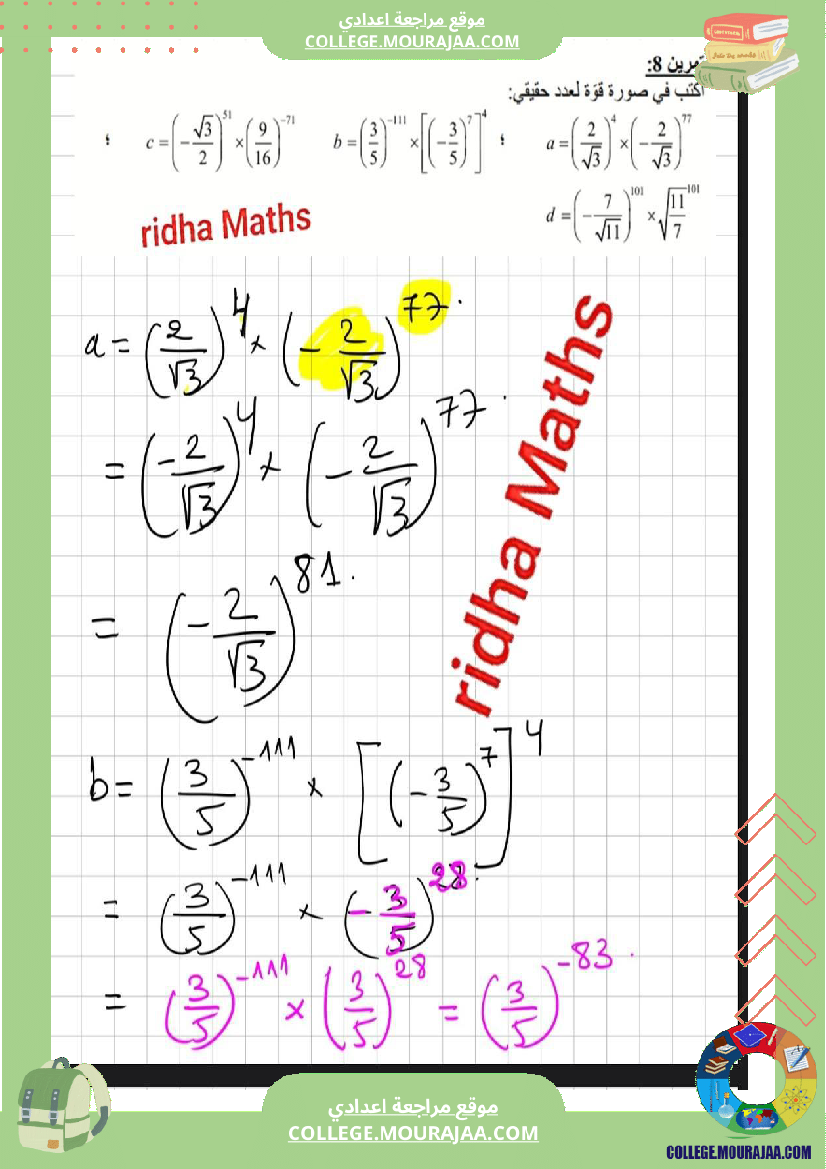 موقع مراجعة اعدادي
COLLEGE.MOURAJAA.COM
تمرين 8:
أكتب في صورة قوّة لعدد حقيقي:
a = (2/√3)^4 × (-2/√3)^77 ؛ b = (3/5)^-111 × [(-3/5)^7]^4 c = (-√3/2)^51 × (9/16)^-71 ؛
d = (-7/√11)^101 × √11/7^101
ridha Maths
a = (2/√3)^4 × (-2/√3)^77.
= (-2/√3)^4 × (-2/√3)^77.
= (-2/√3)^81.
ridha Maths
b = (3/5)^-111 × [(-3/5)^7]^4
= (3/5)^-111 × (-3/5)^28.
= (3/5)^-111 × (3/5)^28 = (3/5)^-83.
موقع مراجعة اعدادي
COLLEGE.MOURAJAA.COM
COLLEGE.MOURAJAA.COM